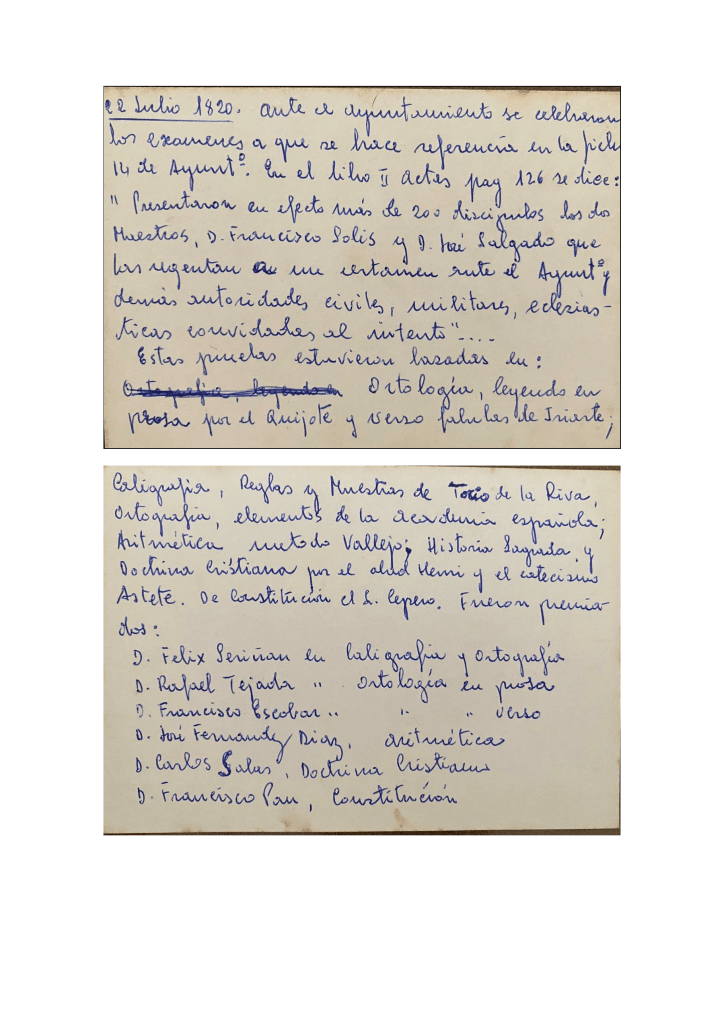 22 Julio 1820. Ante el Ayuntamiento se celebraron
los examenes a que se hace referencia en la ficha
14 de Ayuntº. En el libro II Actas pag 126 se dice:
" Presentaron en efecto más de 200 discipulos los dos
Maestros, D. Francisco Solis y D. José Salgado que
las regentan en un certamen ante el Ayuntº y
demás autoridades civiles, militares, eclesias-
ticas convidadas al intento"....
Estas pruebas estuvieron basadas en:
Ortografia, leyendo en Ortología, leyendo en
prosa por el Quijote y verso fabulas de Iriarte;
Caligrafia, Reglas y Muestras de Torio de la Riva,
Ortografia, elementos de la academia española;
Aritmética metodo Vallejo; Historia Sagrada y
Doctrina Cristiana por el abad Henri y el catecismo
Astete. De Constitución el S. Cepero. Fueron premia-
dos:
D. Felix Seriñan en Caligrafia y Ortografía
D. Rafael Tejada " Ortología en prosa
D. Francisco Escobar " " " verso
D. José Fernandez Diaz, aritmética
D. Carlos Salas, Doctrina Cristiana
D. Francisco Pau, Constitución